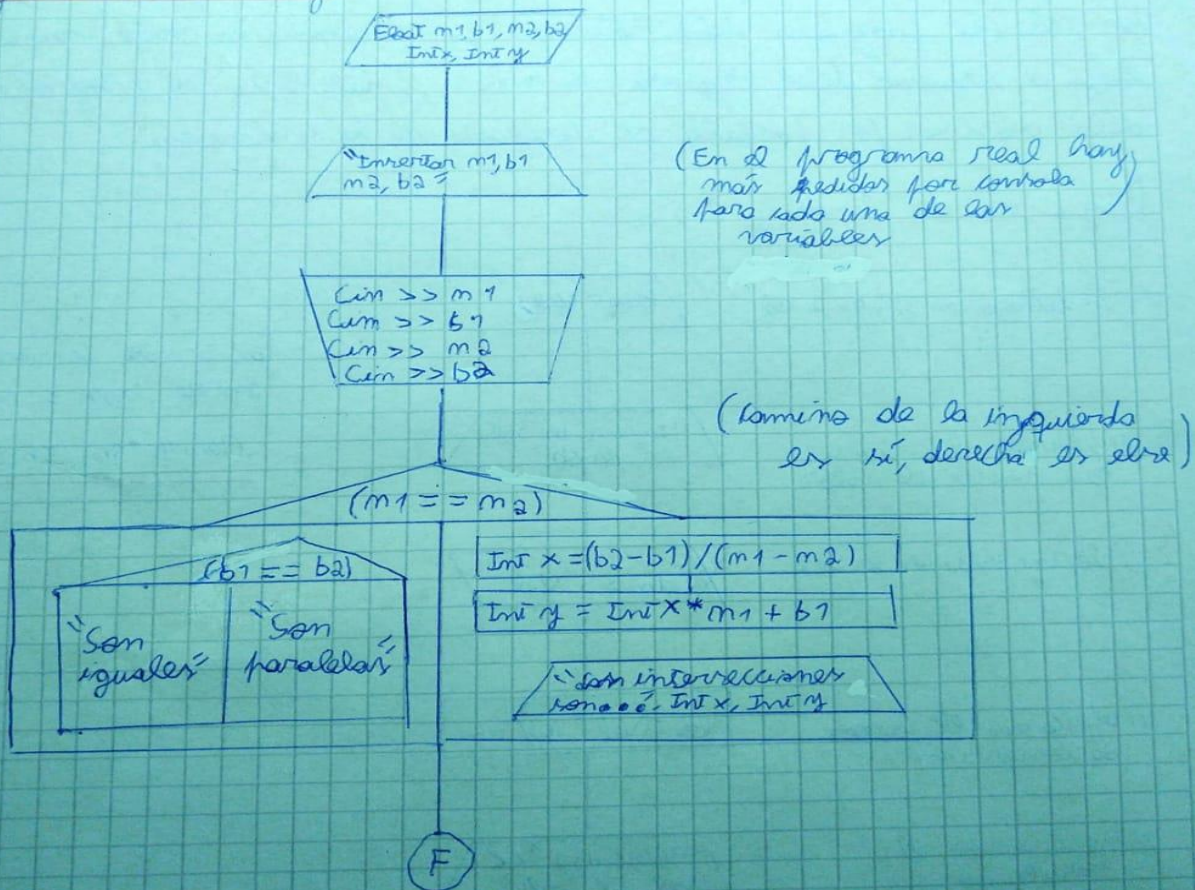 Float m1, b1, m2, b2
Intx, Inty
"Insertar m1, b1
m2, b2"
(En el programa real hay
más pedidos por consola
para cada una de las
variables)
Cin >> m1
Cin >> b1
Cin >> m2
Cin >> b2
(Camino de la izquierda
es sí, derecha es else)
(m1 == m2)
(b1 == b2)
"Son
iguales"
"Son
paralelas"
Int x = (b2-b1)/(m1-m2)
Int y = Int x*m1 + b1
"Las intersecciones
son..." Int x, Int y
F